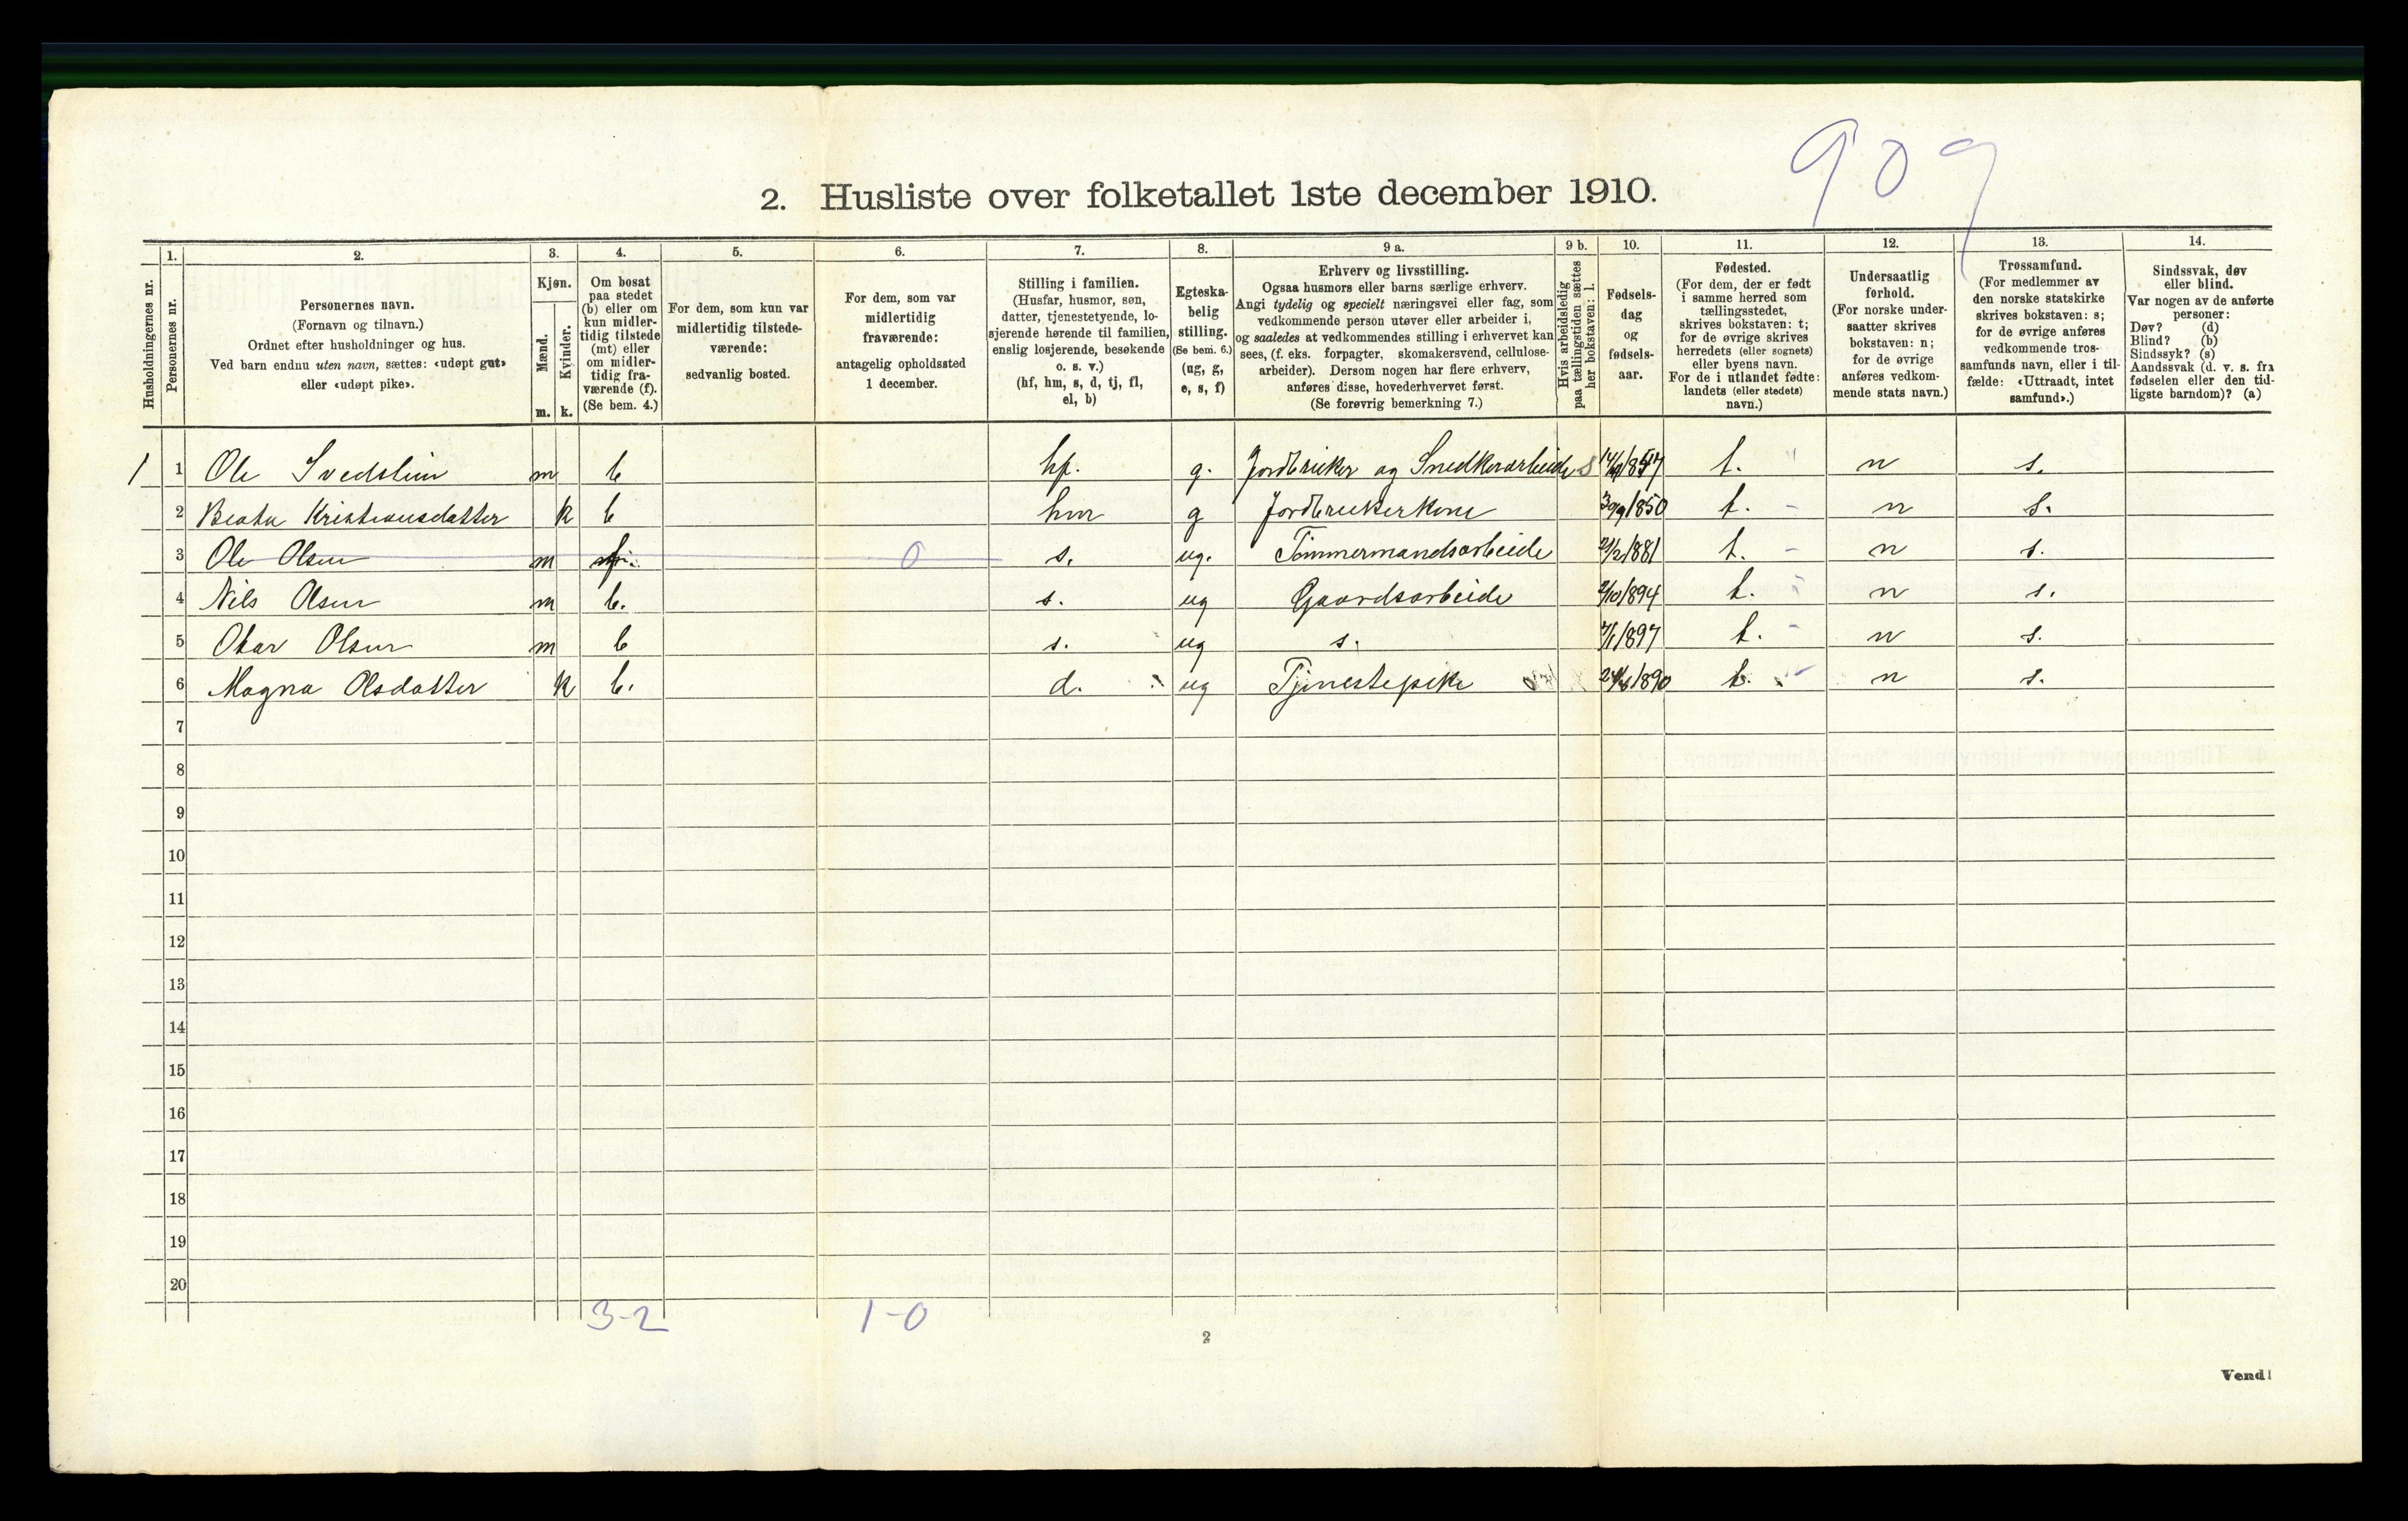 909
2. Husliste over folketallet 1ste december 1910.
Husholdningernes nr.
1. Personernes nr.
2. Personernes navn. (Fornavn og tilnavn.) Ordnet efter husholdninger og hus. Ved barn endnu uten navn, sættes: «udøpt gut» eller «udøpt pike».
3. Kjøn. Mænd. m. Kvinder. k.
4. Om bosat paa stedet (b) eller om kun midlertidig tilstede (mt) eller om midlertidig fraværende (f). (Se bem. 4.)
5. For dem, som kun var midlertidig tilstedeværende: sedvanlig bosted.
6. For dem, som var midlertidig fraværende: antagelig opholdssted 1 december.
7. Stilling i familien. (Husfar, husmor, søn, datter, tjenestetyende, losjerende hørende til familien, enslig losjerende, besøkende o. s. v.) (hf, hm, s, d, tj, fl, el, b)
8. Egteskabelig stilling. (Se bem. 6.) (ug, g, e, s, f)
9 a. Erhverv og livsstilling. Ogsaa husmors eller barns særlige erhverv. Angi tydelig og specielt næringsvei eller fag, som vedkommende person utøver eller arbeider i, og saaledes at vedkommendes stilling i erhvervet kan sees, (f. eks. forpagter, skomakersvend, cellulosearbeider). Dersom nogen har flere erhverv, anføres disse, hovederhvervet først. (Se forøvrig bemerkning 7.)
9 b. Hvis arbeidsledig paa tællingstiden sættes her bokstaven: l.
10. Fødselsdag og fødselsaar.
11. Fødested. (For dem, der er født i samme herred som tællingsstedet, skrives bokstaven: t; for de øvrige skrives herredets (eller sognets) eller byens navn. For de i utlandet fødte: landets (eller stedets) navn.)
12. Undersaatlig forhold. (For norske undersaatter skrives bokstaven: n; for de øvrige anføres vedkommende stats navn.)
13. Trossamfund. (For medlemmer av den norske statskirke skrives bokstaven: s; for de øvrige anføres vedkommende trossamfunds navn, eller i tilfælde: «Uttraadt, intet samfund».)
14. Sindssvak, døv eller blind. Var nogen av de anførte personer: Døv? (d) Blind? (b) Sindssyk? (s) Aandssvak (d. v. s. fra fødselen eller den tidligste barndom)? (a)
1 1 Ole m b hf. g. Jordbruker og Snedkerarbeide t. n s.
2 Beata Kristiansdatter k b hm g Jordbrukerkone 30/9 1850 t. n s.
3 Ole Olsen m 0 s. ug. Tømmermandsarbeide 1881 t. n s.
4 Nils Olsen m b. s. ug Gaardsarbeide 1894 t. n s.
5 Olsen m b s. ug s. 1897 t. n s.
6 Magna Olsdatter k b. d. ug Tjenestepike 1890 t. n s.
7
8
9
10
11
12
13
14
15
16
17
18
19
20
3-2 1-0
2
Vend!